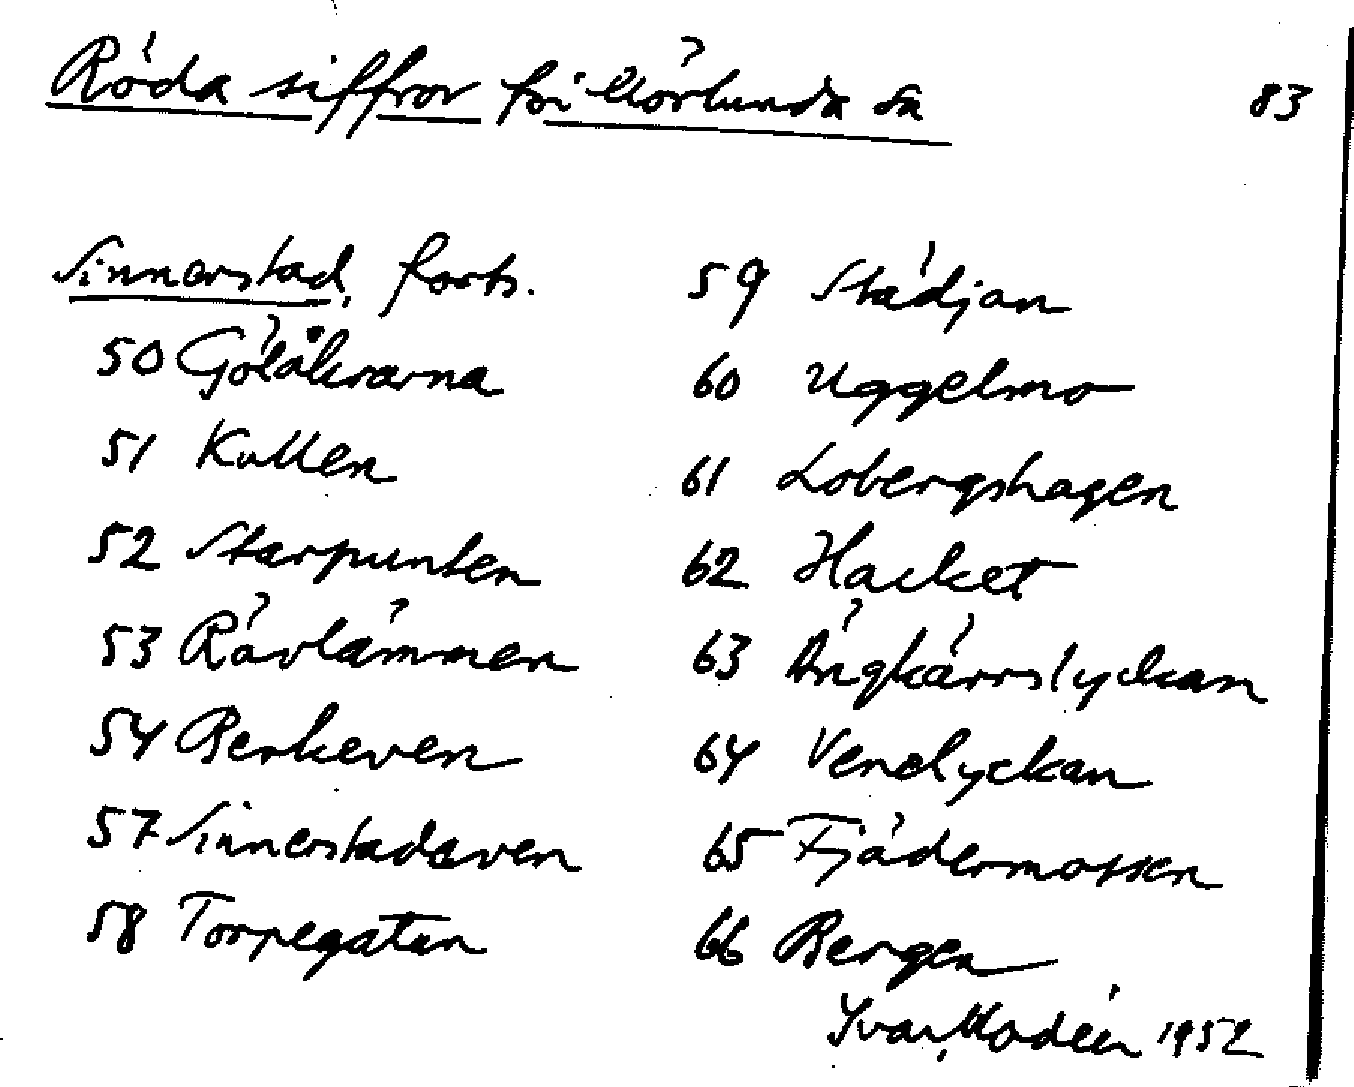 Röda siffror för Mörlunda sn
83
Sinnerstad, forts.
50 Gölåkrarna
51 Kullen
52 Starpunten
53 Rävlämmen
54 Berkeven
57 Sinnerstadaven
58 Torpegatan
59 Städjan
60 Uggelmo
61 Lobergshagen
62 Hacket
63 Ängkärrslyckan
64 Venelyckan
65 Fjädermossen
66 Bergen
Ivar Modéer 1952